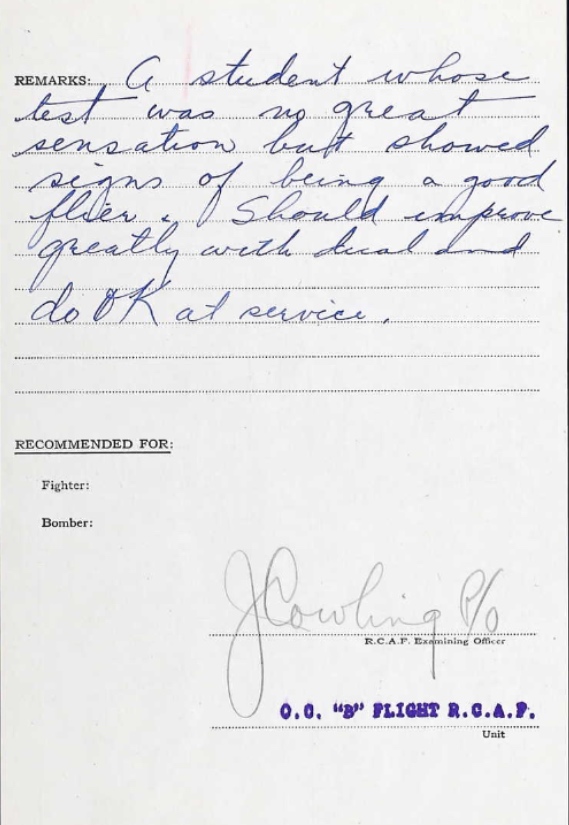 REMARKS: A student whose
test was no great
sensation but showed
signs of being a good
flier. Should improve
greatly with dual and
do OK at service.
RECOMMENDED FOR:
Fighter:
Bomber:
J Cowling P/O
R.C.A.F. Examining Officer
O.C. "B" FLIGHT R.C.A.F.
Unit